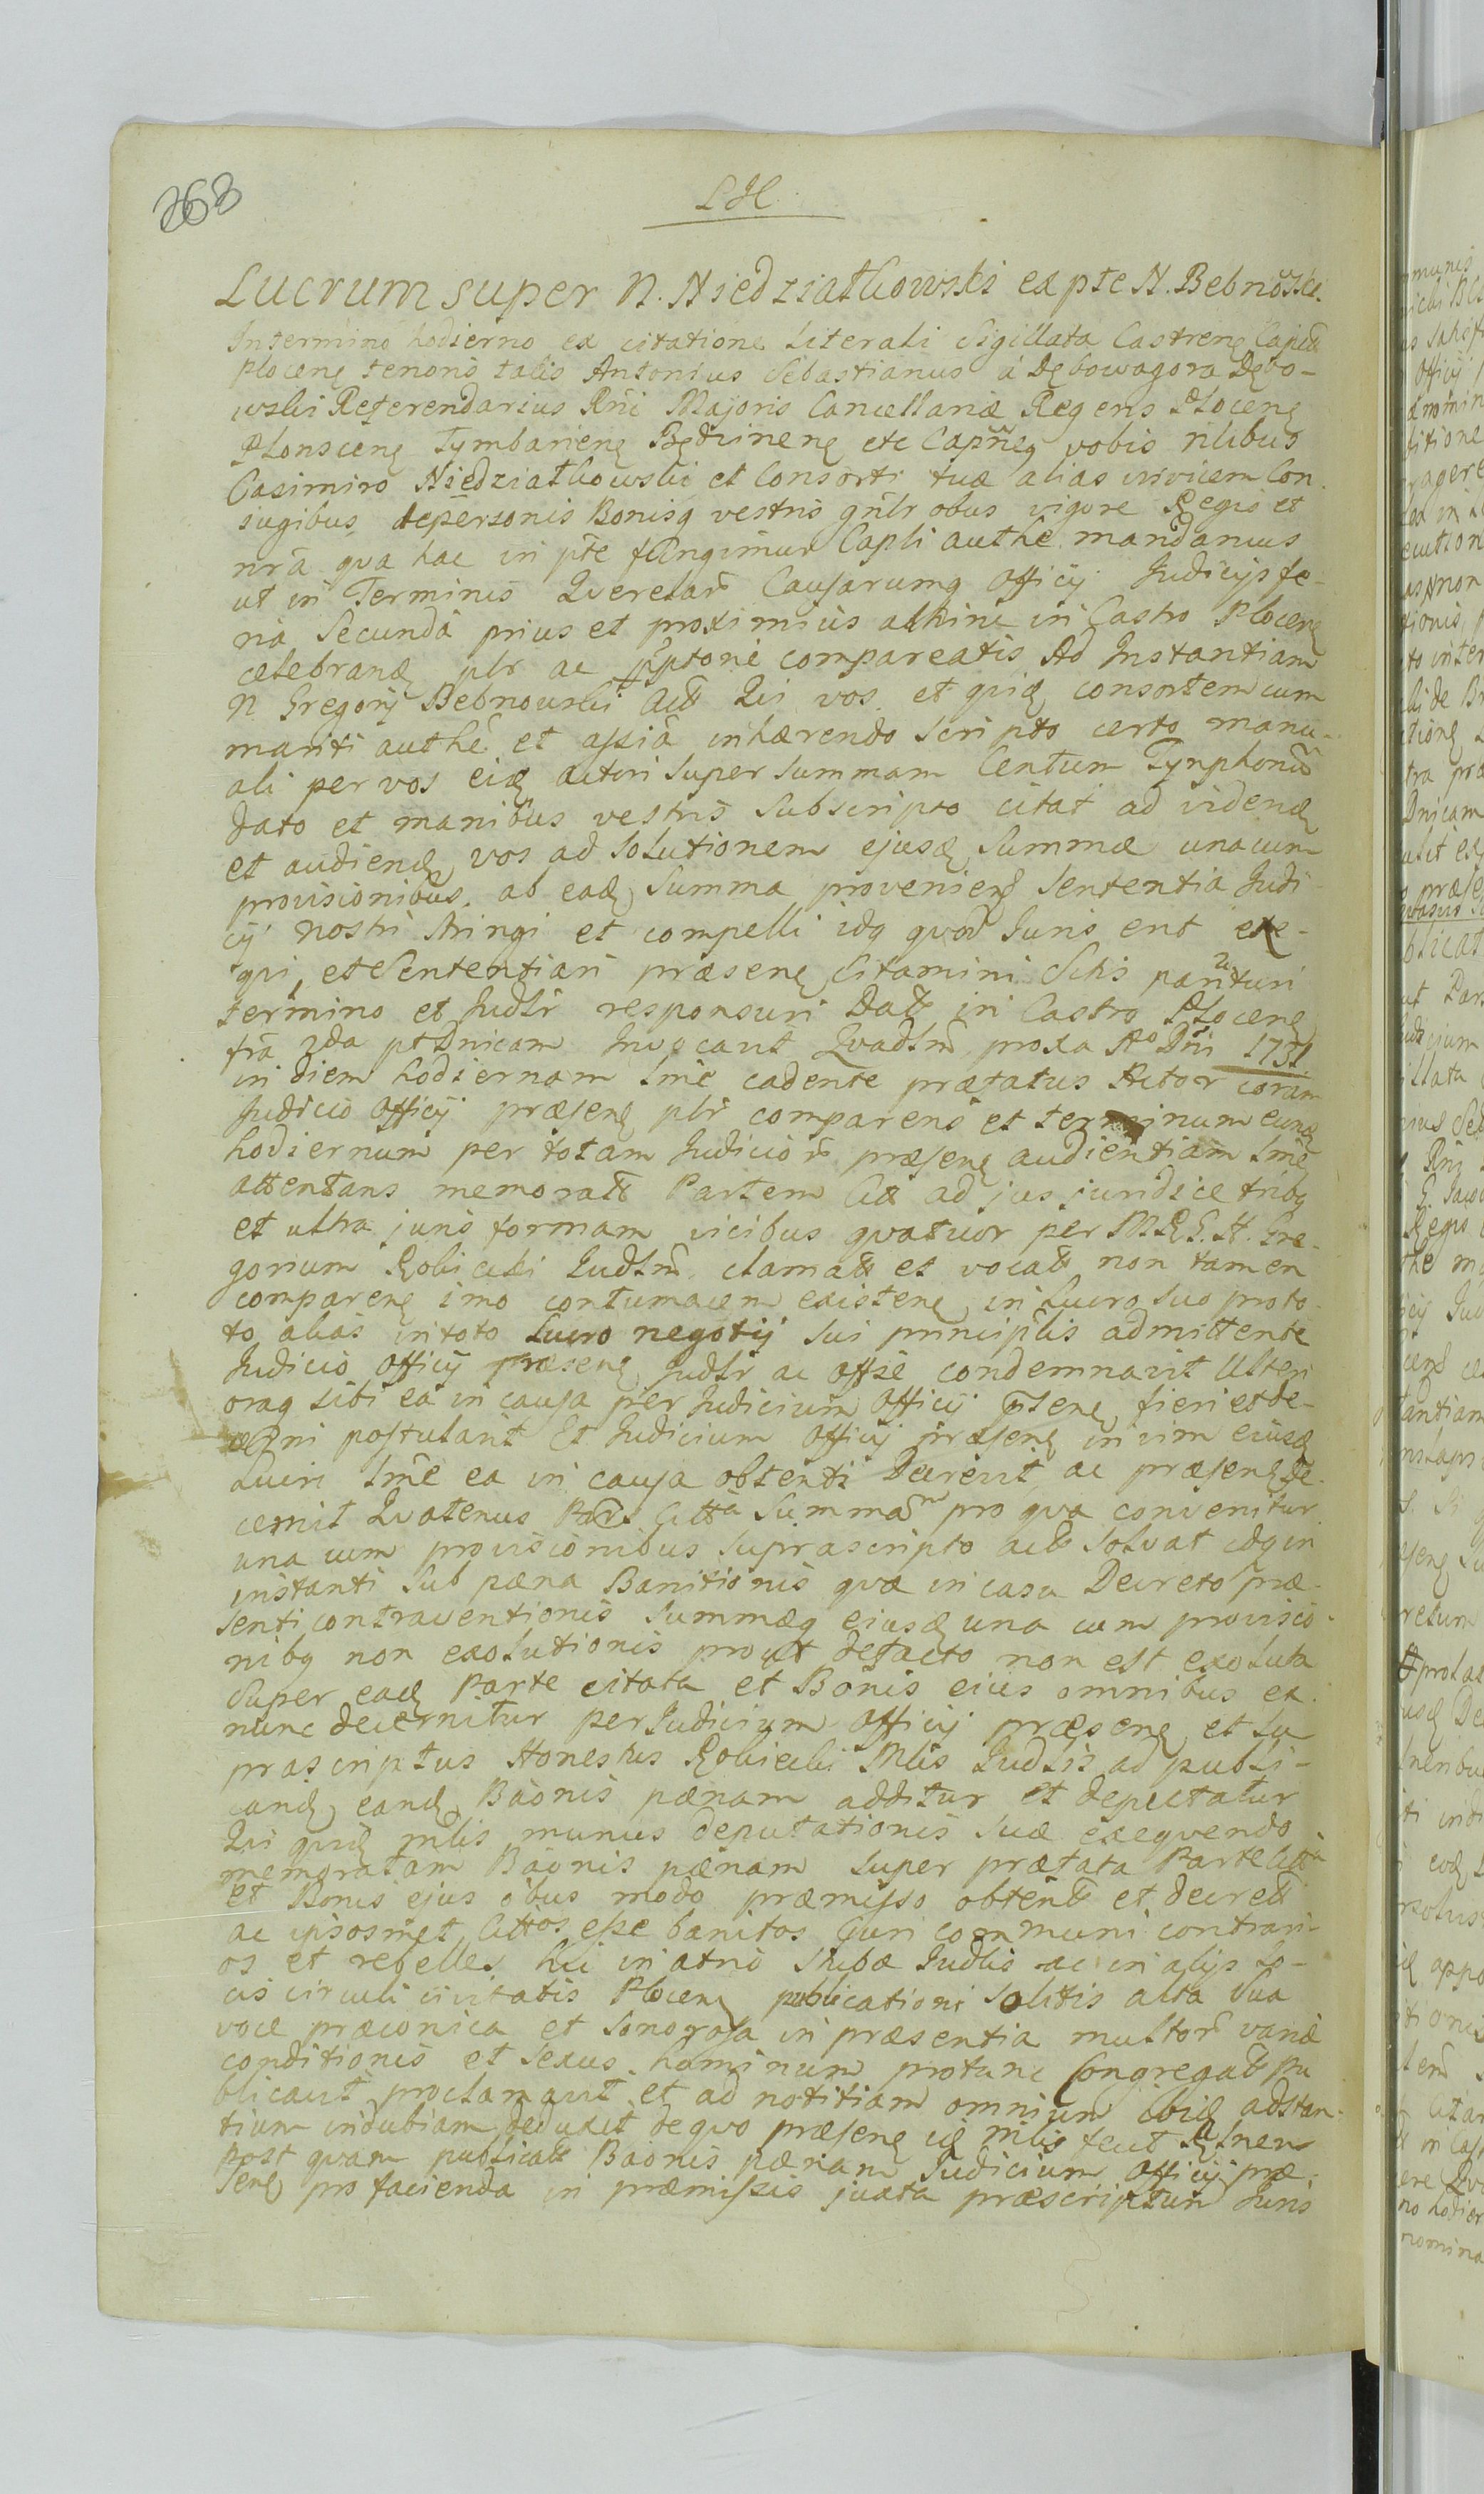 268
LH
Lucrum super N. Niedziałkowski ex pte N. Bebnowski.
In termino hodierno ex citatione Literali Sigillata Castren Capld
Plocen tenoris talis Antonius Sebastianus á Dębowagora Dębo-
wski Referendarius Rni Majoris Cancellariæ Regens Plocen
Plonscen Tymbarien Będzinen etc Capneq vobis nlibus
Casimiro Niedziałkowski et Consorti tuæ alias invicem Con
jugibus, de personis Bonisq vestris gnlr obus vigore Regio et
nra qua hac in pte fungimur Capli authe mandamus
ut in Terminis Querelar Causarumq officij Judicijs fe-
ria Secunda prius et proximius abhinc in Castro Plocen
celebrand plr ac pptorie compareatis Ad Instantiam
N. Gregorij Bebnowski Act Qui vos et quid consortem cum
mariti authe et assia inhærendo scripto certo manu-
ali per vos eid actori super summam Centum Tynphonu
dato et manibus vestris subscripto citat ad videnđ
et audiend vos ad solutionem ejusd summæ una cum
provisionibus ab ead summa proveniend sententia Judi-
cij nostri stringi et compelli idq quod Juris erit exe-
qui, et Sententiari præsen Citamini Sitis parituri
termino et Judlr responsuri Datt in Castro Plocen
fra 2da pt Dnicam Invocavit Quadlm proxa Ao Dni 1731
in diem hodiernam lme cadente prætatus Actor coram
Judicio officij præsen plr comparens et terminum eund
hodiernum per totam Judicior præsen audientiam lme
attentans memoratt Partem Citt ad jus juridice tribq
et ultra juris formam vicibus quatuor per M.R.G.H. Gre-
gorium Robicki Judlm clamatt et vocatt non tamen
comparen imo contumacem existen in Lucro suo proto-
to alias in toto Lucro negotij sui principlis admittente
Judicio officij præsen Judlr ac offse condemnavit Ulteri
oraq sibi ea in causa per Judicium officij psens fieri et de-
cerni postulavit Et Judicium officij præsen in vim eiusd
Lucri lme ea in causa obtenti Decrevit ac præsen de-
cernit Quatenus Pars Citta Summam pro qua convenitur
una cum provisionibus suprascripto actt solvat idq in
instanti sub pæna Banitionis quæ in casu Decreto præ-
senti contraventionis summæq eiusd una cum provisio-
nibq non exolutionis prout defacto non est exoluta
super ead Parte citata et Bonis eius omnibus ex
nunc decernitur per Judicium officij præsen et su
prascriptus Honestus Robicki Mlis Judlis ad publi-
cand eand Baonis pænam additur et deputatur
Qui quid mlis munus deputationis suæ exequendo
memoratam Baonis pænam super prætata Parte Citta
et Bonis ejus obus modo præmisso obtent et decrett
ac ipsosmet Cittos esse banitos Juri communi contrari-
os et rebelles hic in atrio stubæ Judlis ac in alijs lo-
cis circuli civitatis Plocen publicationi solitis alta sua
voce præconica et sonorosa in præsentia multor variæ
conditionis et sexus hominum protunc congregatt pu
blicavit proclamavit et ad notitiam omnium ibid adstan-
tium indubiam deduxit de quo præsens id mlis fecit Rlnem
post quam publicatt Baonis pænam Judicium officij præ-
sens pro facienda in præmissis juxta præscriptum Juris